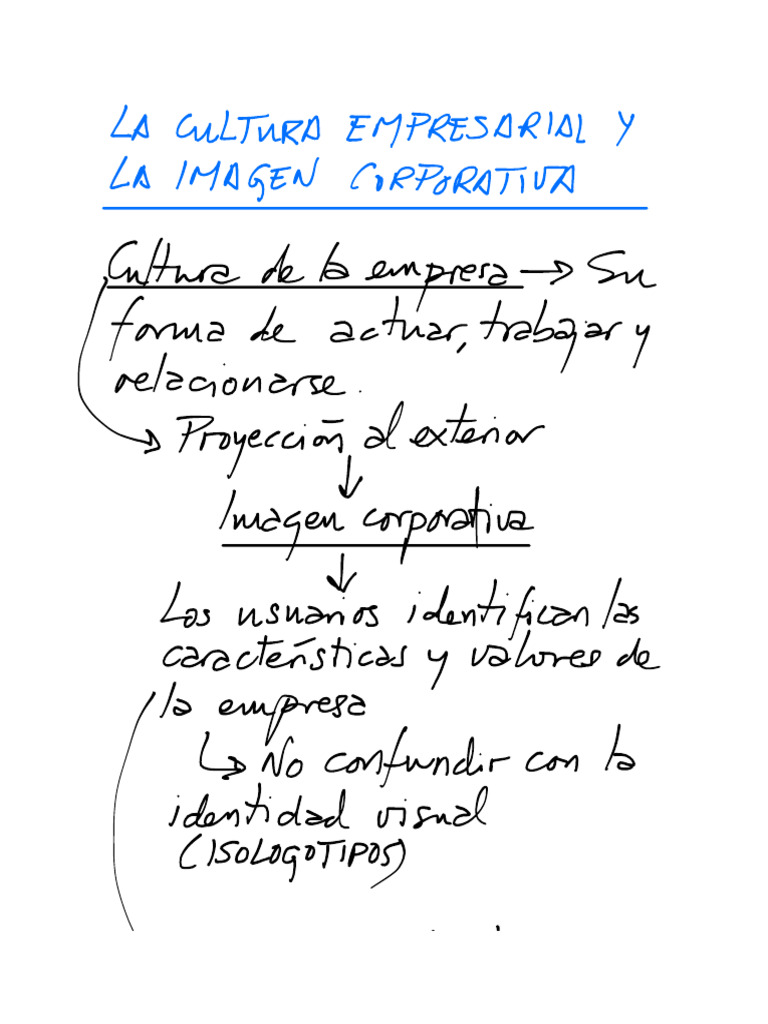 LA CULTURA EMPRESARIAL Y
LA IMAGEN CORPORATIVA
Cultura de la empresa → Su
forma de actuar, trabajar y
relacionarse.
→ Proyección al exterior
↓
Imagen corporativa
↓
Los usuarios identifican las
características y valores de
la empresa
↳ No confundir con la
identidad visual
(ISOLOGOTIPOS)